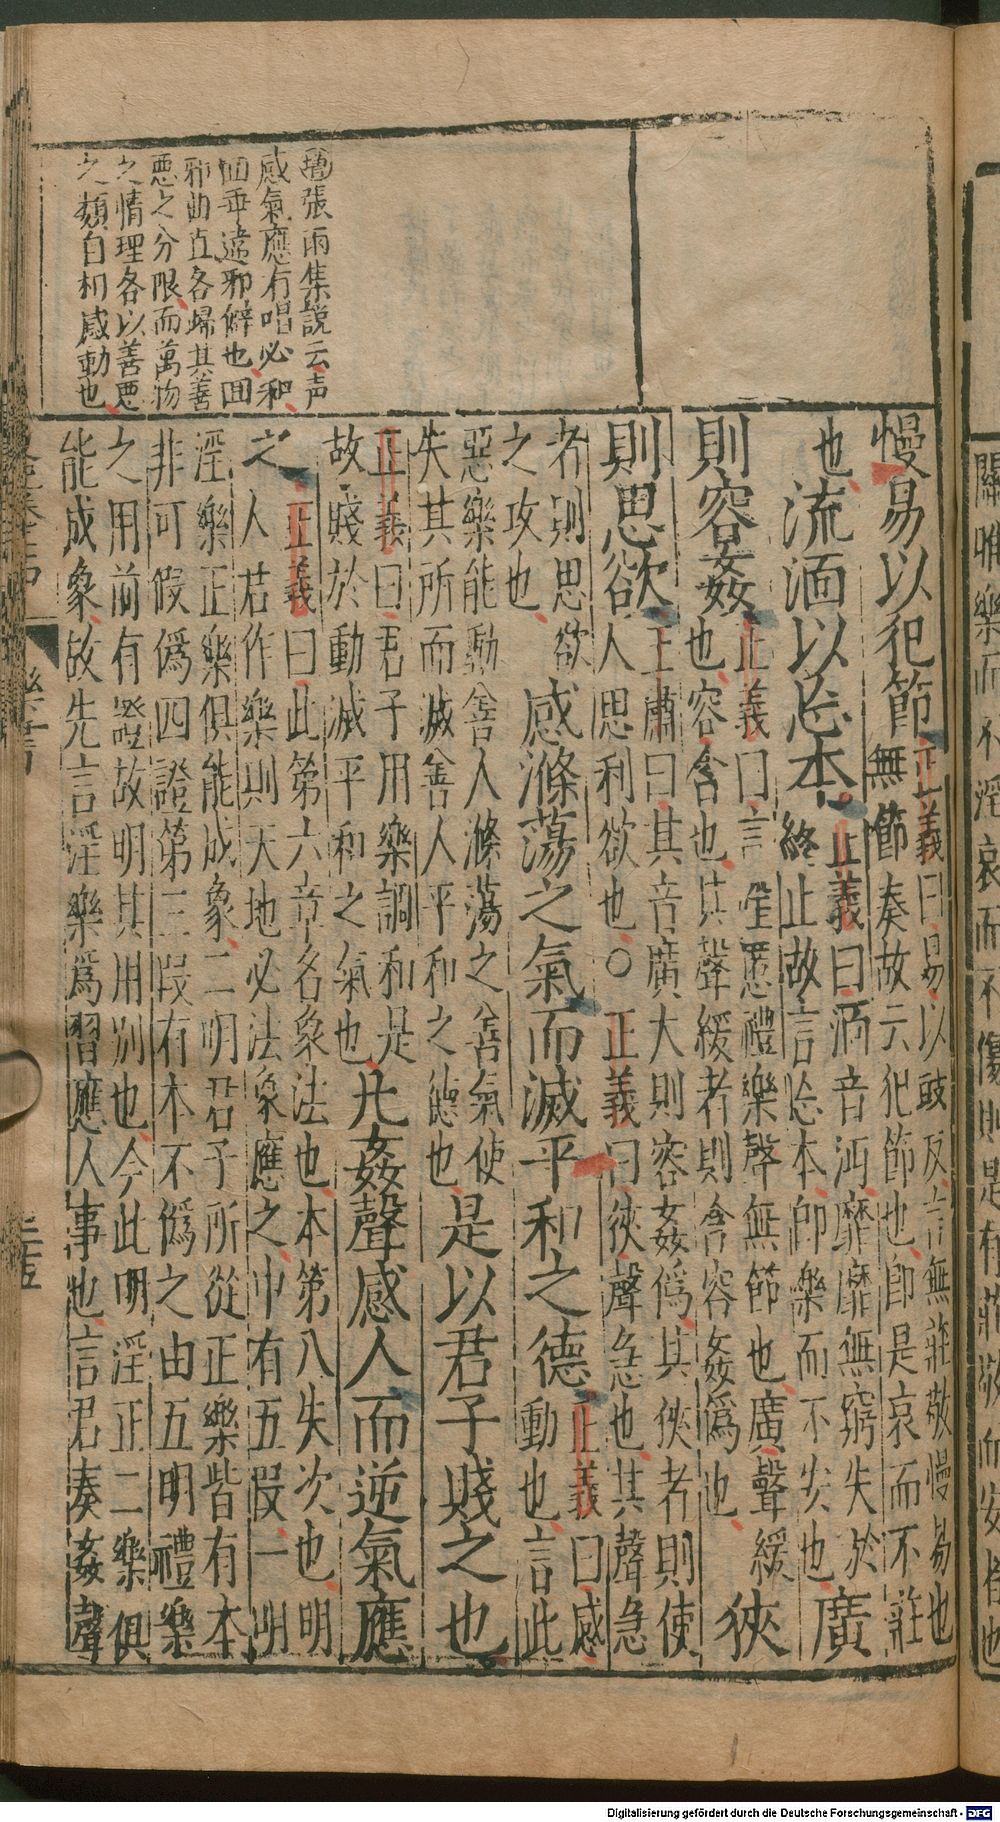 關雎樂而不淫哀而不傷則是有莊敬而安者也
張雨集説云声
感氣應有唱必和
囬乖違邪僻也囬
邪曲直各歸其善
惡之分限而萬物
之情理各以善惡
之類自相感動也
慢易以犯節
正義曰易以豉反言無莊敬慢易也
無節奏故云犯節也即是哀而不莊
也
流湎以忘本
正義曰湎音沔靡靡無窮失於
終止故言忘本即樂而不安也
廣
則容姦
正義曰言淫慝禮樂聲無節也廣聲緩
也容含也其聲緩者則含容姦僞也
狹
則思欲
王肅曰其音廣大則容姦僞其狹者則使
人思利欲也○正義曰狹聲急也其聲急
者則思欲
之攻也
感滌蕩之氣而滅平和之德
正義曰感
動也言此
惡樂能動善人滌蕩之善氣使
失其所而滅善人平和之德也
是以君子賤之也
正義曰君子用樂調和是
故賤於動滅平和之氣也
凡姦聲感人而逆氣應
正義曰此第六章名象法也本第八失次也明
之人若作樂則天地必法象應之中有五段一明
淫樂正樂俱能成象二明君子所從正樂皆有本
非可假僞四證第三段有本不僞之由五明禮樂
之用前有證故明其用別也今此明淫正二樂俱
能成象故先言淫樂爲習應人事也言君奏姦聲
Digitalisierung gefördert durch die Deutsche Forschungsgemeinschaft - DFG